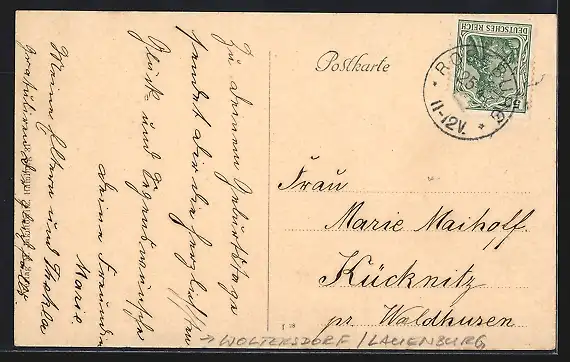 Zu deinem Geburtstage
sendet dir die herzlichsten
Glück- und Segenswünsche
deine Freundin
Marie
Meine Eltern und Thekla
gratulieren
Postkarte
DEUTSCHES REICH
11-12V.
Frau
Marie Maihoff.
Kücknitz
pr Waldhusen
→ WOLTERSDORF / LAUENBURG